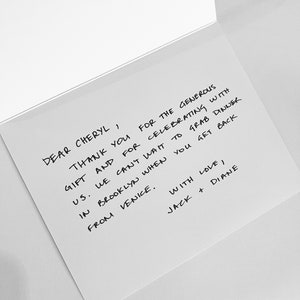 DEAR CHERYL,
THANK YOU FOR THE GENEROUS
GIFT AND FOR CELEBRATING WITH
US. WE CAN'T WAIT TO GRAB DINNER
IN BROOKLYN WHEN YOU GET BACK
FROM VENICE.
WITH LOVE,
JACK + DIANE